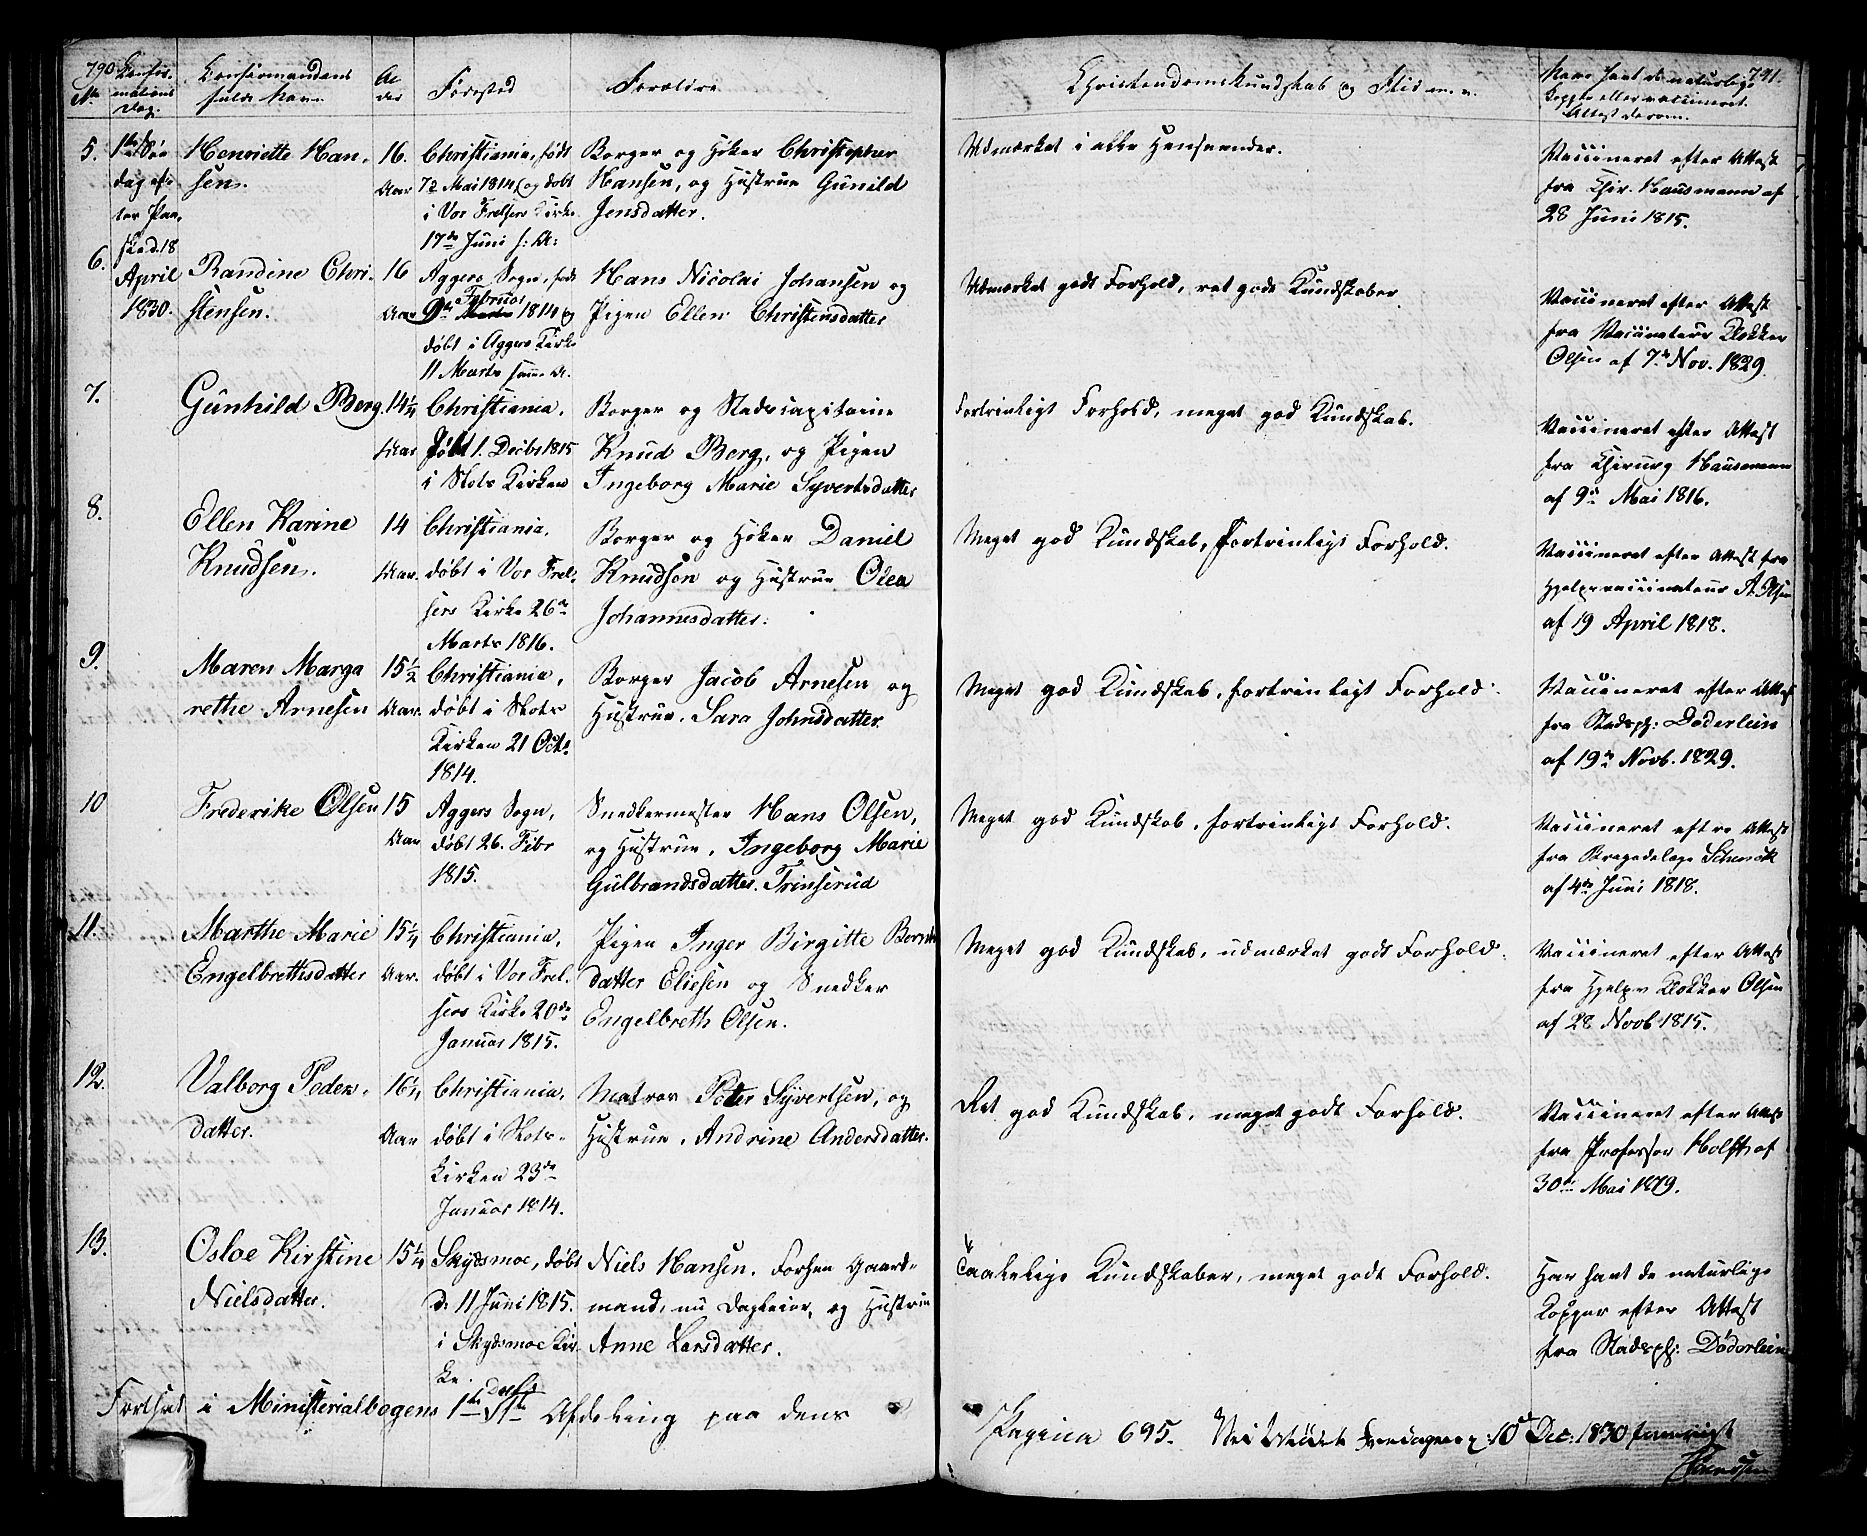 790
No
Confir-
mations
Dag.
Confirmandens
fulde Navn
Al-
der
Fødested
Forældre
Christendomskundskab og Flid m. v.
791.
Have havt de naturlige
Kopper eller vaccineret.
Attest derom.
5.
1ste Søn
dag ef-
ter Paa-
ske d. 18
April
1830.
Henriette Han-
sen.
16.
Aar
Christiania, født
7de Mai 1814, og døbt
i Vor Frelsers Kirke
17de Juni s: A:
Borger og Høker Christopher
Hansen, og Hustrue Gunild
Jensdatter.
Udmærket i alle Henseender.
Vaccineret efter Attest
fra Chir. Hausmann af
28 Juni 1815.
6.
Randine Chri-
stensen.
16
Aar
Aggers Sogn, født
Februar
9de Marts 1814 og
døbt i Aggers Kirke
11 Marts samme A.
Hans Nicolai Johansen og
Pigen Ellen Christensdatter
Udmærket godt Forhold, ret gode Kundskaber.
Vaccineret efter Attest
fra Vaccinateur Klokker
Olsen af 7de Nov. 1829.
7.
Gunhild Berg
14 1/4
Aar
Christiania.
Døbt 1. Decbr 1815
i Slots Kirken
Borger og Stadscapitaine
Knud Berg, og Pigen
Ingeborg Marie Syvertsdatter
Fortrinligt Forhold, meget god Kundskab.
Vaccineret efter Attest
fra Chirurg Hausmann
af 9de Mai 1816.
8.
Ellen Karine
Knudsen.
14
Aar.
Christiania.
døbt i Vor Frel-
sers Kirke 26de
Marts 1816.
Borger og Høker Daniel
Knudsen og Hustrue Olea
Johannesdatter.
Meget god Kundskab, fortrinligt Forhold.
Vaccineret efter Attest fra
Hjelpevaccinateur A. Olsen
af 19 April 1818.
9.
Maren Marga
rethe Arnesen
15 1/2
Aar.
Christiania,
døbt i Slots
Kirken 21 Octr
1814.
Borger Jacob Arnesen og
Hustrue, Sara Johnsdatter
Meget god Kundskab, fortrinligt Forhold.
Vaccineret efter Attest
fra Stadsph: Døderlein
af 19de Novb. 1829.
10
Frederike Olsen
15
Aar
Aggers Sogn,
døbt 26. Febr
1815.
Snedkermester Hans Olsen,
og Hustrue, Ingeborg Marie
Gulbrandsdatter. Trinserud
Meget god Kundskab, fortrinligt Forhold.
Vaccineret eftre Attest
fra Bregadelæge Schenck
af 4de Juni 1818.
11.
Marthe Marie
Engelbrethsdatter
15 1/4
Aar.
Christiania,
døbt i Vor Frel-
sers Kirke 20de
Januar 1815.
Pigen Inger Birgitte
datter Eliesen og Snedker
Engelbreth Olsen.
Meget god Kundskab, udmærket godt Forhold.
Vaccineret efter Attest
fra Hjelpe Klokker Olsen
af 28 Novb 1815.
12.
Valborg Peders-
datter.
16 1/4
Aar
Christiania,
døbt i Slots-
Kirken 23de
Januar 1814.
Matros Peter Syvertsen, og
Hustrue, Andrine Andersdatter.
Ret god Kundskab, meget godt Forhold.
Vaccineret efter Attest
fra Professor Holst af
30te Mai 1829.
13.
Osloe Kirstine
Nielsdatter.
15 1/4
Skydsmoe, døbt
d. 11 Juni 1815.
i Skydsmoe Kir-
ke.
Niels Hansen, Forhen Gaard-
mand, nu Dagleier, og Hustrue
Anne Larsdatter.
Taalelige Kundskaber, meget godt Forhold.
Har havt de naturlige
Kopper efter Attest
fra Stadsph: Døderlein
Fortsat i Ministerialbogens 1ste Afdeling paa dens
Pagina 695. 10de Dec: 1830